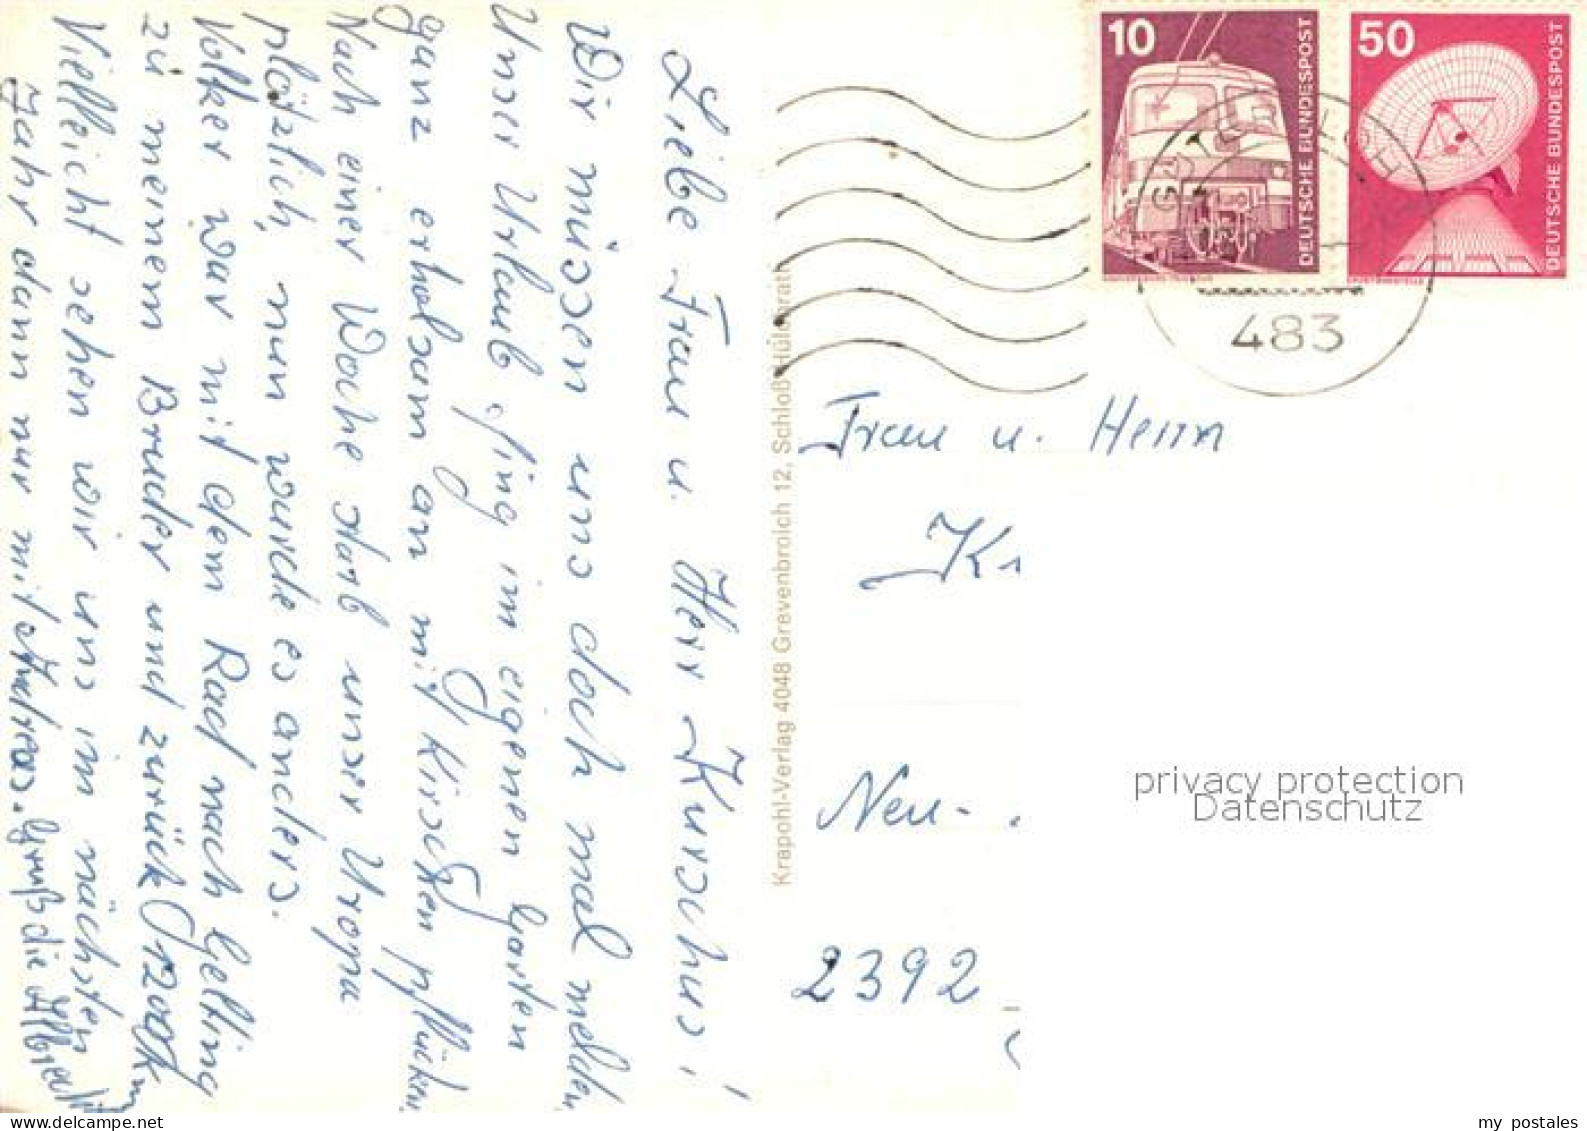 Liebe Frau u. Herr Kurschus!
Wir müssen uns doch mal melden,
Unser Urlaub fing im eigenen Garten
ganz erholsam an mit Kirschen pflücken.
Nach einer Woche starb unser Uropa
plötzlich, nun wurde es anders.
Volker war mit dem Rad nach Gelting
zu meinem Bruder und zurück
Vielleicht sehen wir uns im nächsten
Jahr dann nur mit Andreas. Gruß die
Krapohl-Verlag 4048 Grevenbroich 12, Schloß Hülchrath
10
DEUTSCHE BUNDESPOST
50
DEUTSCHE BUNDESPOST
483
Frau u. Herrn
Neu-
2392
privacy protection
Datenschutz
my postales